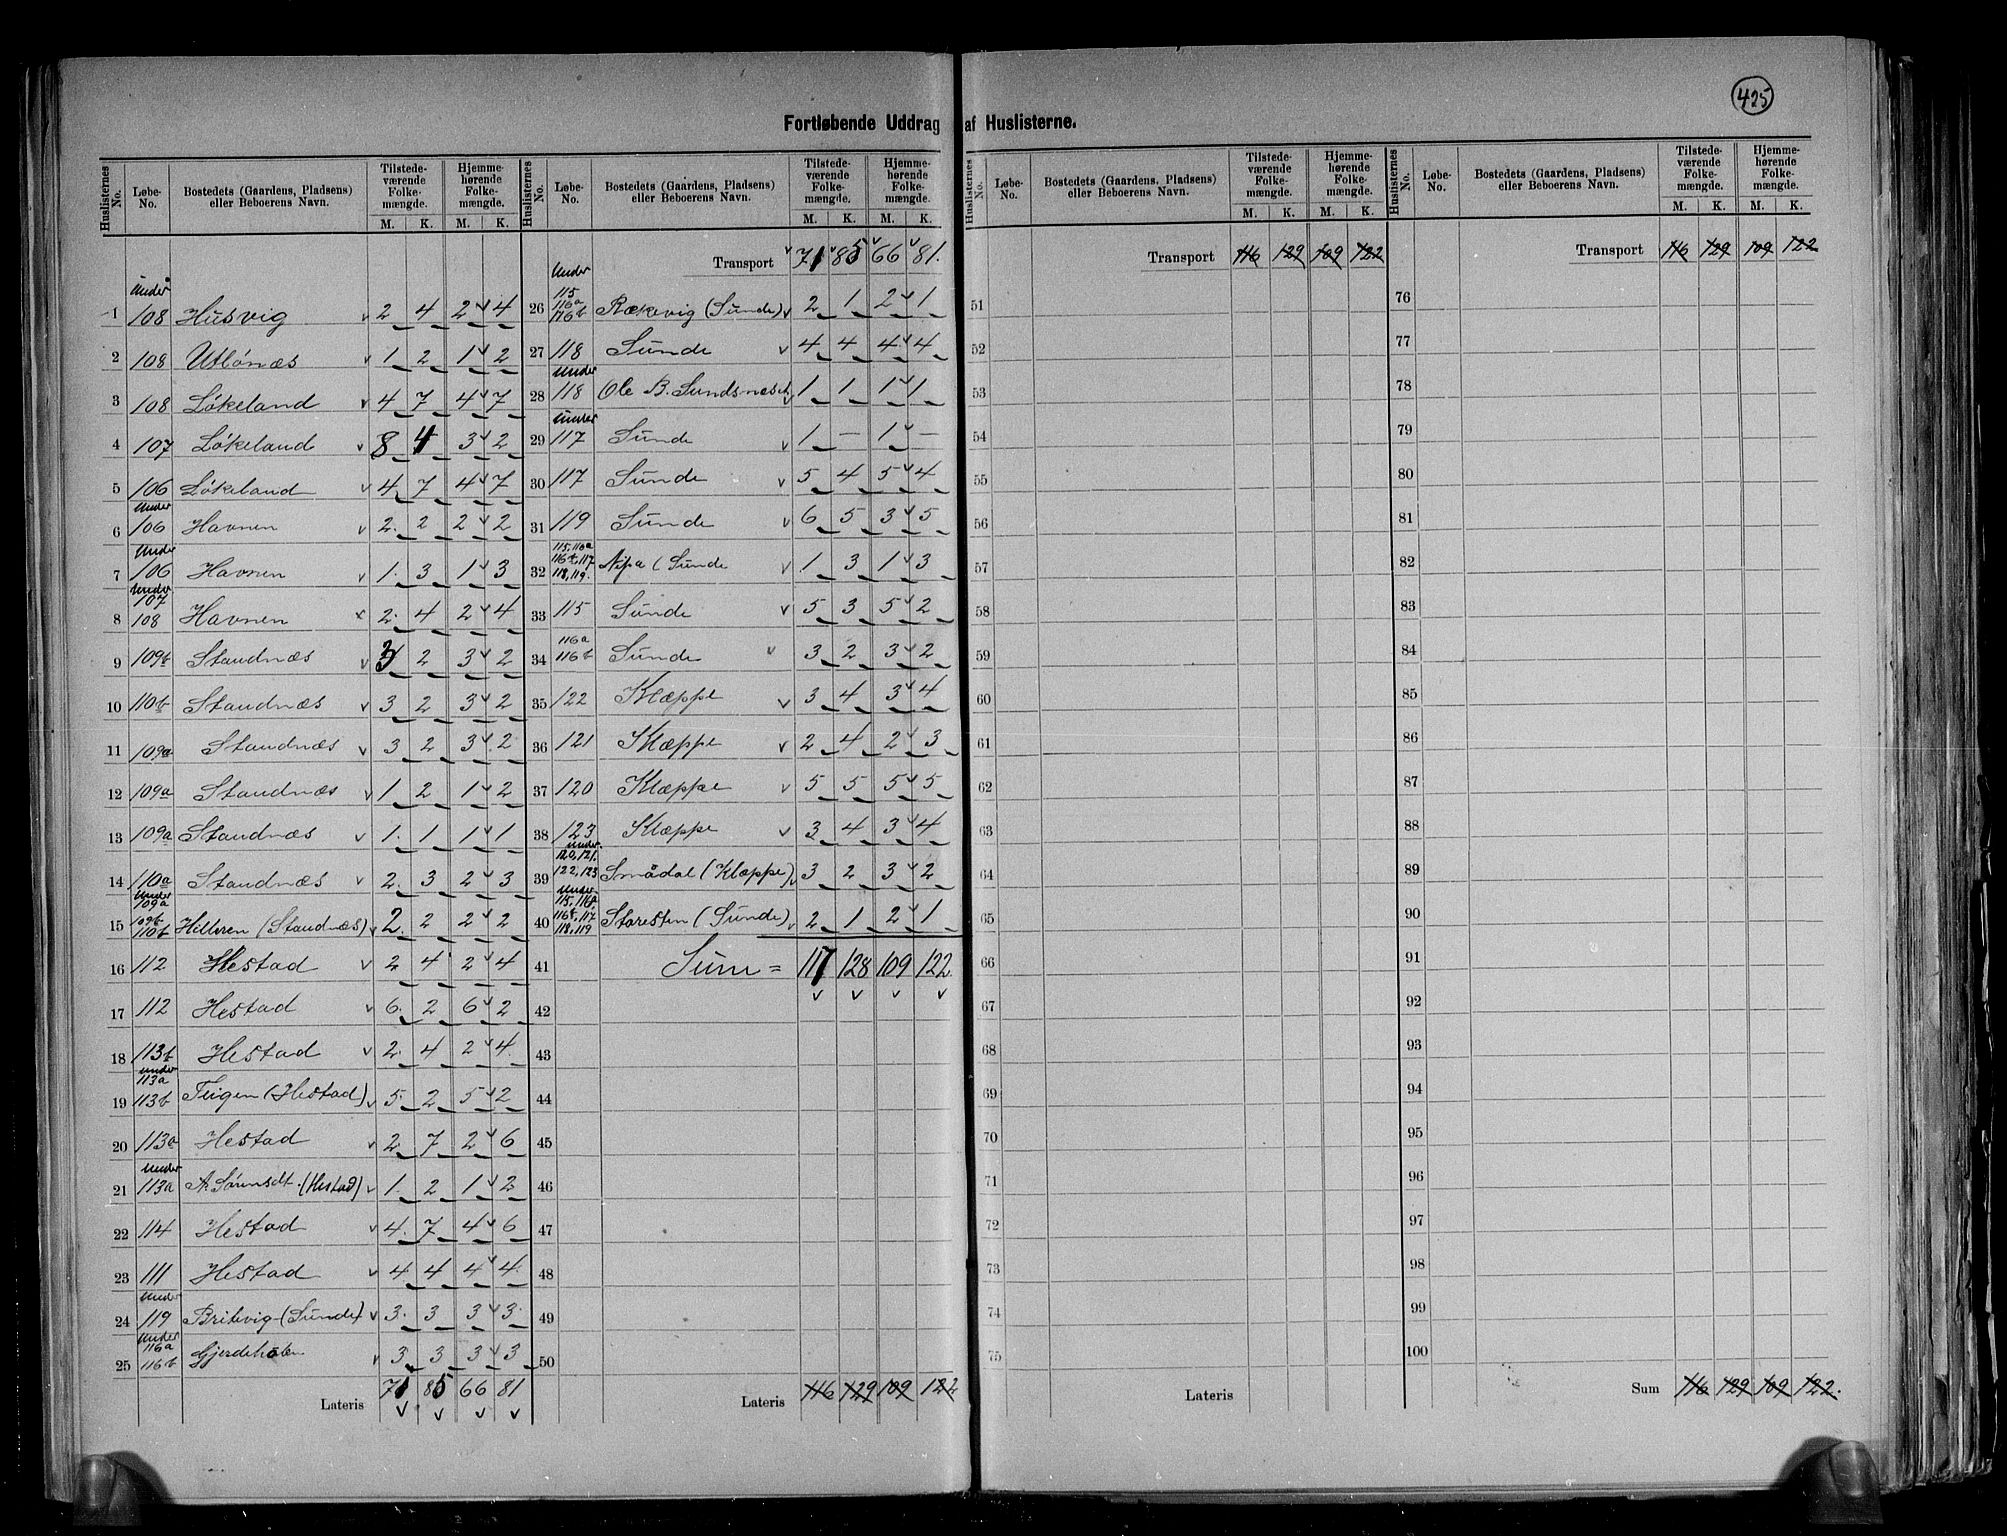 425
Fortløbende Uddrag af Huslisterne.
Huslisternes No. | Løbe-No. | Bostedets (Gaardens, Pladsens) eller Beboerens Navn. | Tilstedeværende Folkemængde. M. K. | Hjemmehørende Folkemængde. M. K.
1 | under 108 | Husvig | 2 | 4 | 2 | 4
2 | 108 | Utlønæs | 1 | 2 | 1 | 2
3 | 108 | Løkeland | 4 | 7 | 4 | 7
4 | 107 | Løkeland | 8 | 4 | 3 | 2
5 | 106 | Løkeland | 4 | 7 | 4 | 7
6 | under 106 | Havnen | 2 | 2 | 2 | 2
7 | under 106 | Havnen | 1 | 3 | 1 | 3
8 | under 107 108 | Havnen | 2 | 4 | 2 | 4
9 | 109b | Standnæs | 3 | 2 | 3 | 2
10 | 110b | Standnæs | 3 | 2 | 3 | 2
11 | 109a | Standnæs | 3 | 2 | 3 | 2
12 | 109a | Standnæs | 1 | 2 | 1 | 2
13 | 109a | Standnæs | 1 | 1 | 1 | 1
14 | 110a | Standnæs | 2 | 3 | 2 | 3
15 | under 109a 109b 110b | Hilleren (Standnæs) | 2 | 2 | 2 | 2
16 | 112 | Hestad | 2 | 4 | 2 | 4
17 | 112 | Hestad | 6 | 2 | 6 | 2
18 | 113b | Hestad | 2 | 4 | 2 | 4
19 | under 113a 113b | Teigen (Hestad) | 5 | 2 | 5 | 2
20 | 113a | Hestad | 2 | 7 | 2 | 6
21 | under 113a | A. Sørensdt. (Hestad) | 1 | 2 | 1 | 2
22 | 114 | Hestad | 4 | 7 | 4 | 6
23 | 111 | Hestad | 4 | 4 | 4 | 4
24 | under 119 | Britevig (Sunde) | 3 | 3 | 3 | 3
25 | under 116a 116b | Gjerdeholen | 3 | 3 | 3 | 3
Lateris 71 85 66 81
Huslisternes No. | Løbe-No. | Bostedets (Gaardens, Pladsens) eller Beboerens Navn. | Tilstedeværende Folkemængde. M. K. | Hjemmehørende Folkemængde. M. K.
Transport 71 85 66 81
26 | under 115 116a 116b | Rækevig (Sunde) | 2 | 1 | 2 | 1
27 | 118 | Sunde | 4 | 4 | 4 | 4
28 | under 118 | Ole B. Sundsneset | 1 | 1 | 1 | 1
29 | under 117 | Sunde | 1 | – | 1 | –
30 | 117 | Sunde | 5 | 4 | 5 | 4
31 | 119 | Sunde | 6 | 5 | 3 | 5
32 | 115, 116a 116b, 117 118, 119. | Nipa (Sunde | 1 | 3 | 1 | 3
33 | 115 | Sunde | 5 | 3 | 5 | 2
34 | 116a 116b | Sunde | 3 | 2 | 3 | 2
35 | 122 | Klæppe | 3 | 4 | 3 | 4
36 | 121 | Klæppe | 2 | 4 | 2 | 3
37 | 120 | Klæppe | 5 | 5 | 5 | 5
38 | 123 | Klæppe | 3 | 4 | 3 | 4
39 | under 120, 121. 122, 123 | Smådal (Klæppe) | 3 | 2 | 3 | 2
40 | under 115, 116a, 116b, 117 118, 119 | Staresten (Sunde) | 2 | 1 | 2 | 1
41 | Sum = 117 128 109 122
42
43
44
45
46
47
48
49
50
Lateris 116 129 109 122
Huslisternes No. | Løbe-No. | Bostedets (Gaardens, Pladsens) eller Beboerens Navn. | Tilstedeværende Folkemængde. M. K. | Hjemmehørende Folkemængde. M. K.
Transport 116 129 109 122
51
52
53
54
55
56
57
58
59
60
61
62
63
64
65
66
67
68
69
70
71
72
73
74
75
Lateris
Huslisternes No. | Løbe-No. | Bostedets (Gaardens, Pladsens) eller Beboerens Navn. | Tilstedeværende Folkemængde. M. K. | Hjemmehørende Folkemængde. M. K.
Transport 116 129 109 122
76
77
78
79
80
81
82
83
84
85
86
87
88
89
90
91
92
93
94
95
96
97
98
99
100
Sum 116 129 109 122.